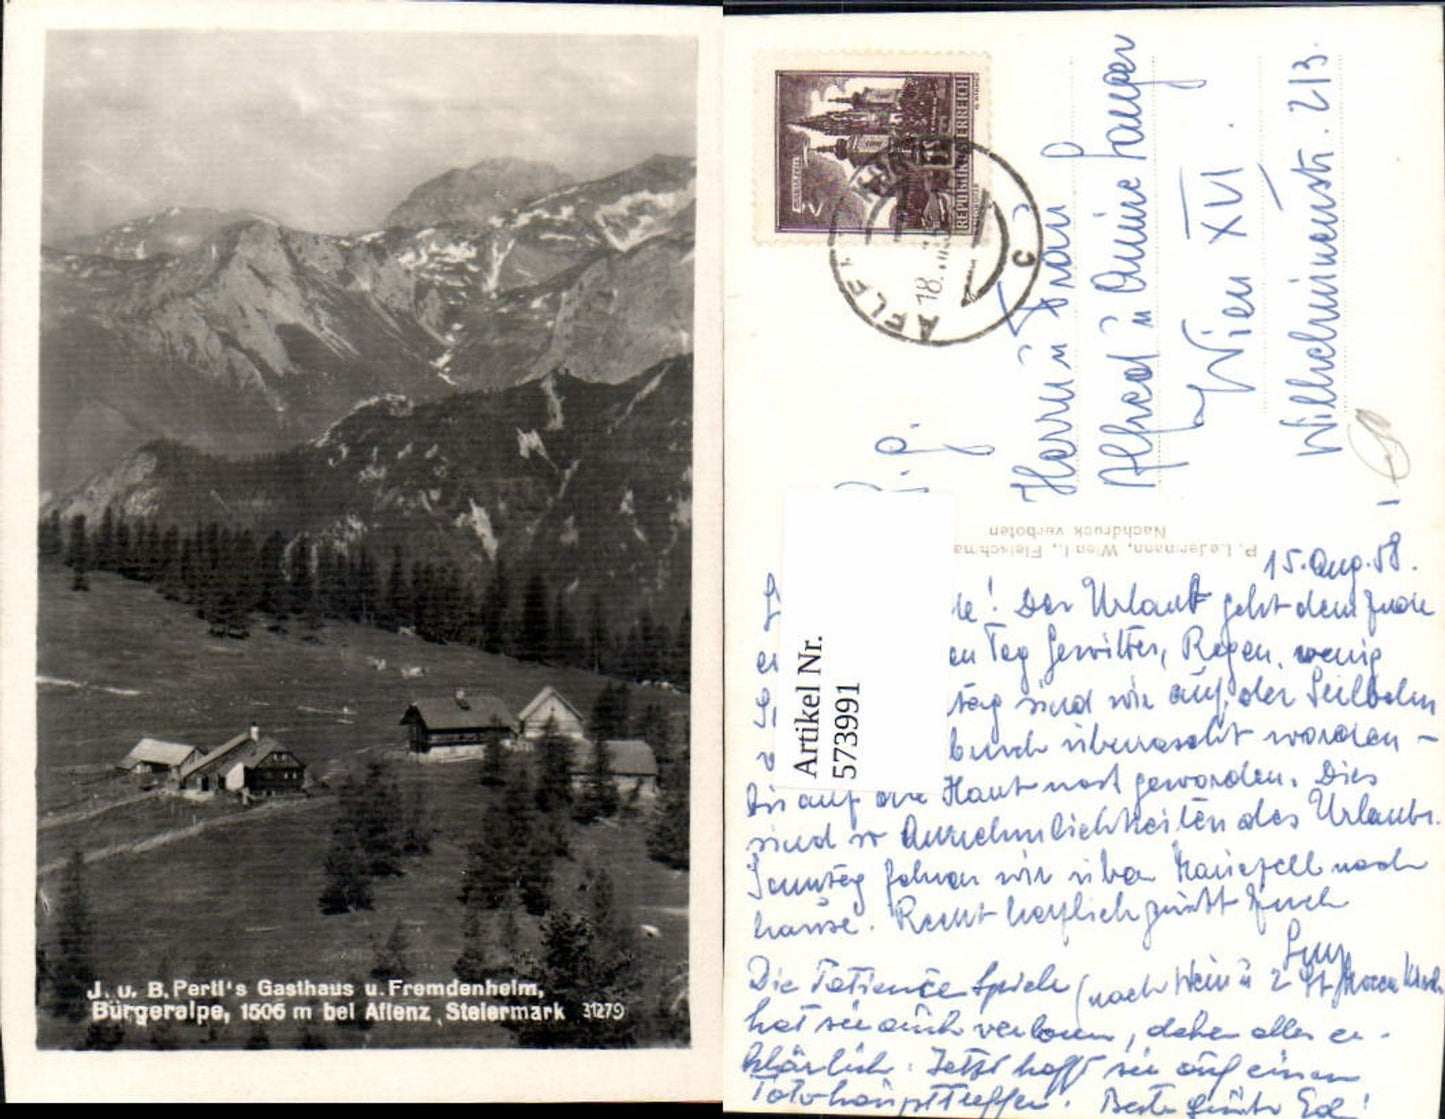 J. u. B. Pertl's Gasthaus u. Fremdenheim,
Bürgeralpe, 1506 m bei Aflenz, Steiermark 31279
REPUBLIK ÖSTERREICH
AFLENZ
18.
C
p. p.
Herrn u Frau
Alfred u Annine Langer
Wien XVI.
Wilhelminenstr. 213.
P. Ledermann, Wien I., Fleischma
Nachdruck verboten
Artikel Nr.
573991
15. Aug. 58.
le! Der Urlaub geht dem Ende
en Tag Gewitter, Regen, wenig
tag sind wir auf der Seilbahn
bruch überrascht worden –
bis auf die Haut nass geworden. Dies
sind so Annehmlichkeiten des Urlaubs.
Samstag fahren wir über Mariazell nach
hause. Recht herzlich grüsst Euch
Die Patience Spiele (nach Wein u 2
hat sie auch verloren, daher alles er-
klärlich. Jetzt hofft sie auf einen
Totohaupttreffer. Beste Grüße